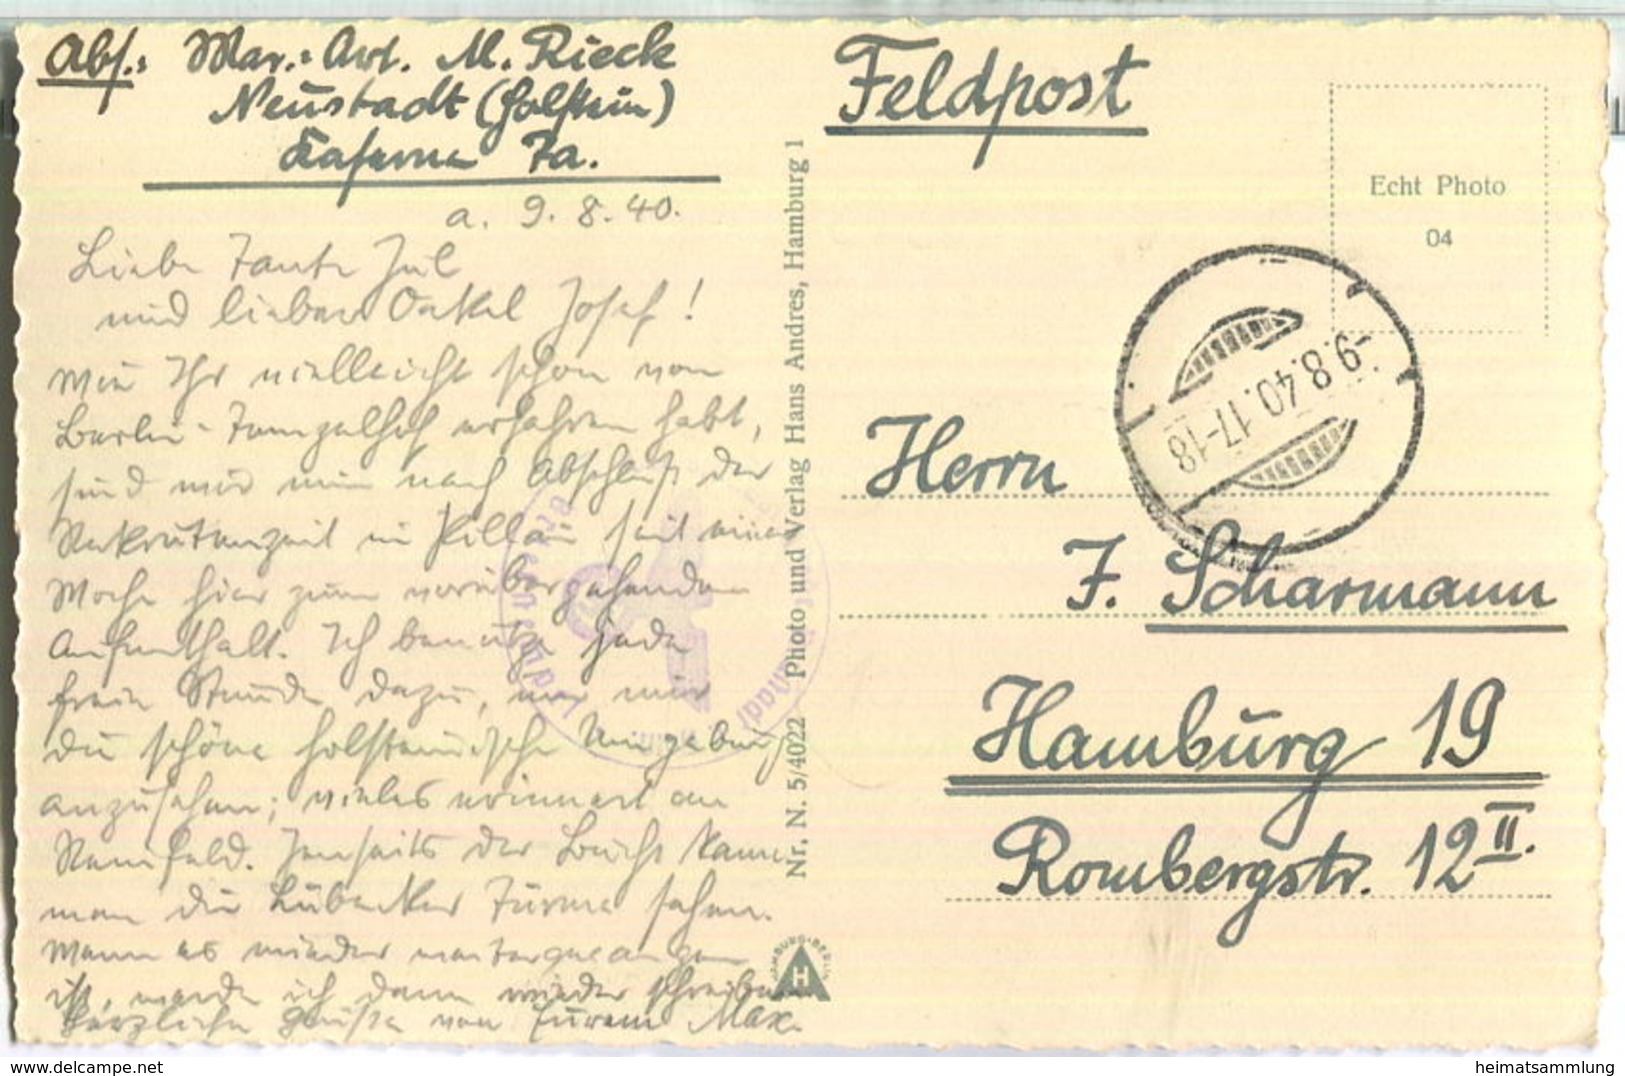 Abs.: Mar.-Art. M. Rieck
Neustadt (Holstein)
Kaserne Ia.
a. 9. 8. 40.
Liebe Tante Jul
und lieber Onkel Josef!
Wie Ihr vielleicht schon von
Berlin-Tempelhof erfahren habt,
sind wir nun nach Abschluß der
Rekrutenzeit in Pillau seit einer
Woche hier zum vorübergehenden
Aufenthalt. Ich benutze jede
freie Stunde dazu, um mir
die schöne holsteinische Umgebung
anzusehen; vieles erinnert an
Reinfeld. Jenseits der Bucht kann
man die Lübecker Türme sehen.
Wenn es wieder weitergegangen
ist, werde ich dann wieder schreiben.
Herzliche Grüße von Eurem Max.
Nr. N. 5/4022 Photo und Verlag Hans Andres, Hamburg 1
HAMBURG-BERLIN
H
Feldpost
Echt Photo
04
-9.8.40.17-18
Herrn
J. Scharmann
Hamburg 19
Rombergstr. 12 II.
heimatsammlung